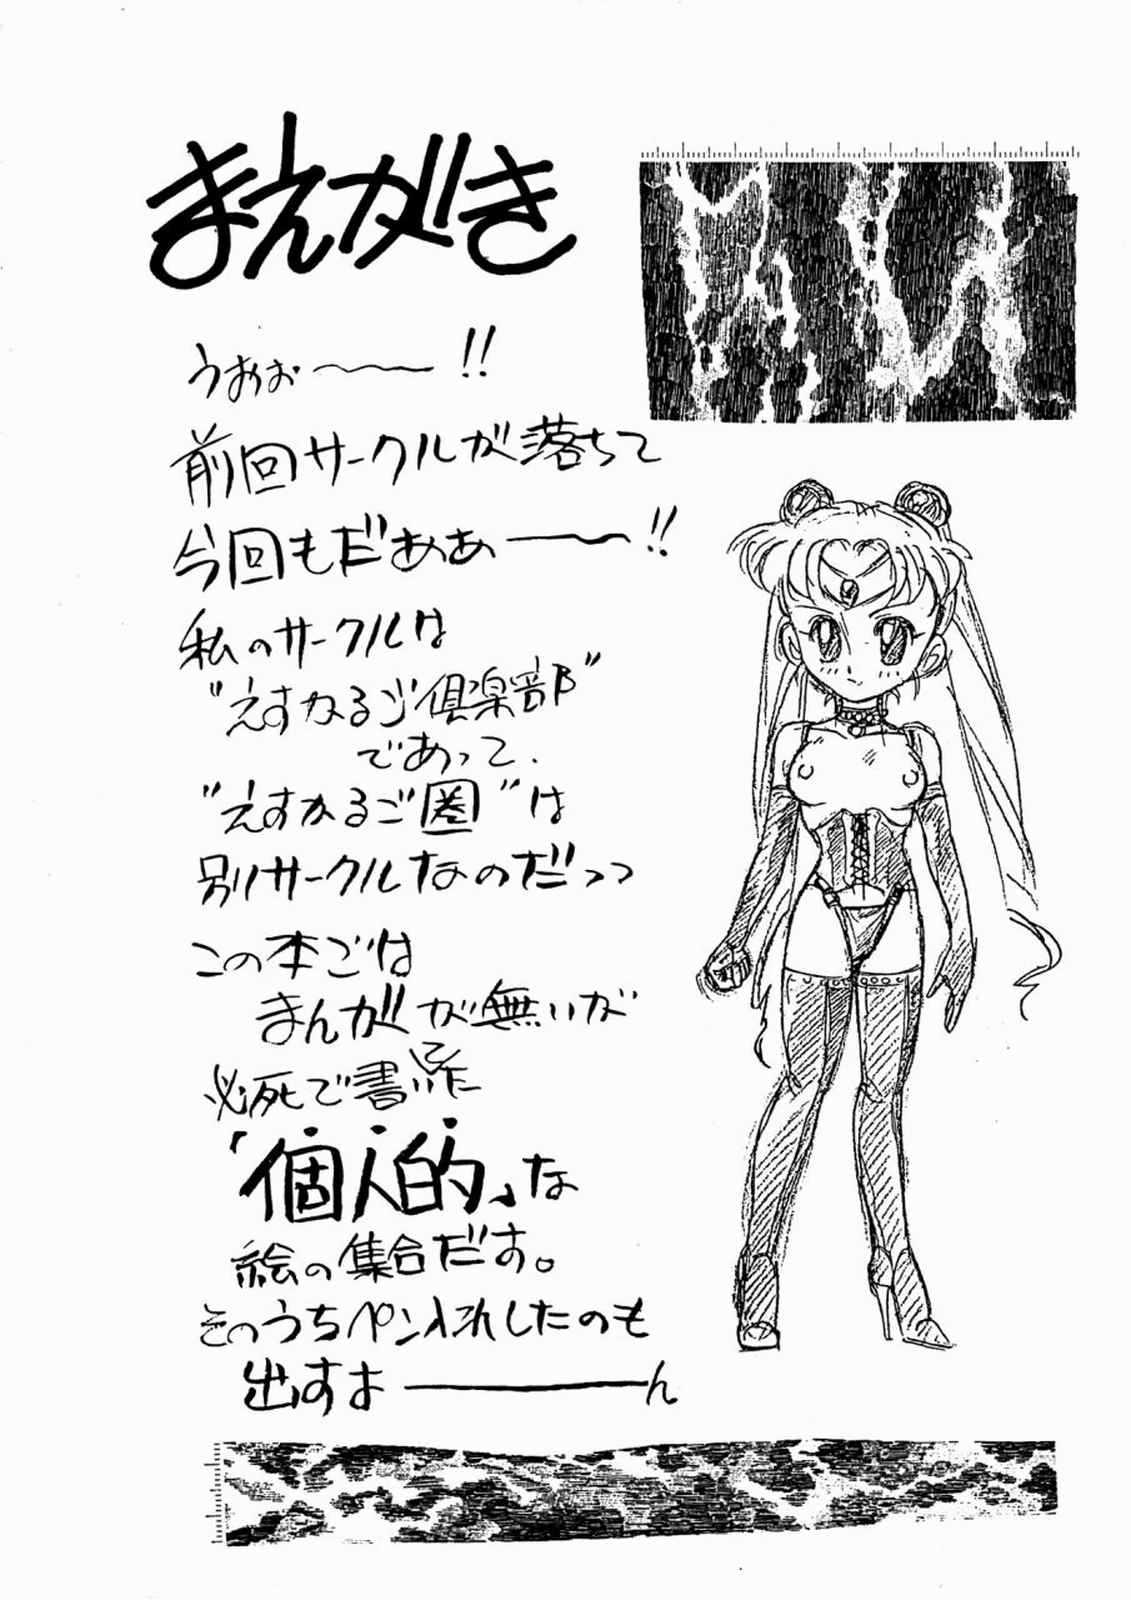 まえがき
うおぉ〜〜!!
前回サークルが落ちて
今回もだぁあー〜!!
私のサークルは
"えすかるご倶楽部"
であって、
"えすかるご圏"は
別サークルなのだっっ
この本では
まんがが無いが
必死で書いた
「個人的」な
絵の集合だす。
そのうちペン入れしたのも
出すよ――ん